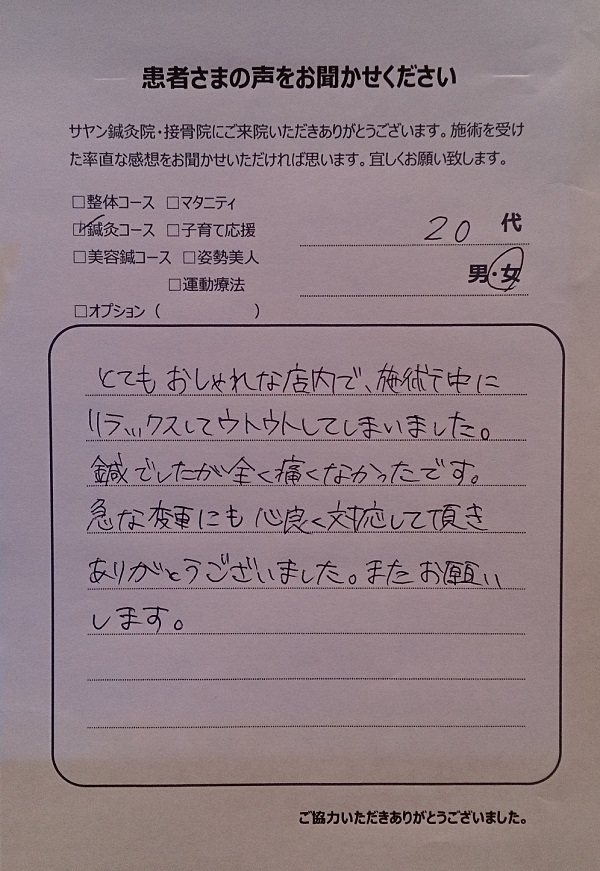 患者さまの声をお聞かせください
サヤン鍼灸院・接骨院にご来院いただきありがとうございます。施術を受け
た率直な感想をお聞かせいただければ思います。宜しくお願い致します。
□整体コース □マタニティ
☑鍼灸コース □子育て応援
20 代
□美容鍼コース □姿勢美人
男・女
□運動療法
□オプション（ ）
とてもおしゃれな店内で、施術中に
リラックスしてウトウトしてしまいました。
鍼でしたが全く痛くなかったです。
急な変更にも心良く対応して頂き
ありがとうございました。またお願い
します。
ご協力いただきありがとうございました。